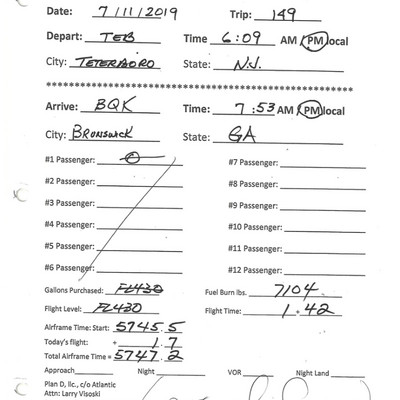 Date: 7/11/2019 Trip: 149
Depart: TEB Time 6:09 AM / PM local
City: TETERBORO State: N.J.
****************************************
Arrive: BQK Time: 7:53 AM / PM local
City: BRUNSWICK State: GA
#1 Passenger: 0 #7 Passenger:
#2 Passenger: #8 Passenger:
#3 Passenger: #9 Passenger:
#4 Passenger: #10 Passenger:
#5 Passenger: #11 Passenger:
#6 Passenger: #12 Passenger:
Gallons Purchased: FL430 Fuel Burn lbs. 7104
Flight Level: FL430 Flight Time: 1.42
Airframe Time: Start: 5745.5
Today's flight: + 1.7
Total Airframe Time = 5747.2
Approach Night VOR Night Land
Plan D, llc., c/o Atlantic
Attn: Larry Visoski